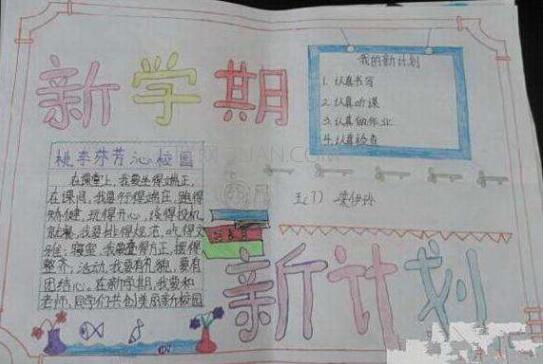 新学期
我的新计划
1. 认真书写
2. 认真听课
3. 认真做作业
4. 认真检查
桃李芬芳沁校园
在课堂上,我要坐得端正,
在课间,我要行得端正,跑得
矫健,玩得开心,读得投机
就餐,我要排得规范,吃得文
雅;寝室,我要叠得方正,摆得
整齐;活动,我要有礼貌,要有
团结心。在新学期,我要和
老师,同学们共创美丽新校园
五(7)
新计划